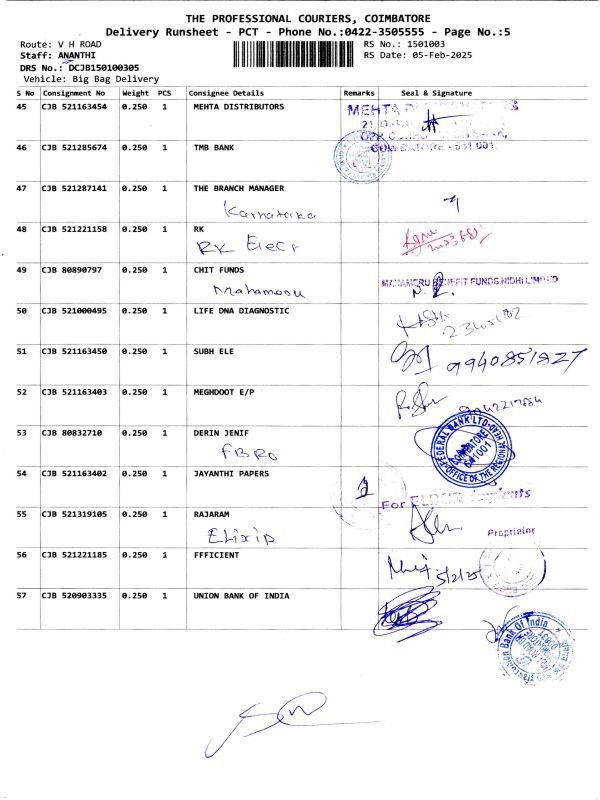 THE PROFESSIONAL COURIERS, COIMBATORE
Delivery Runsheet - PCT - Phone No.:0422-3505555 - Page No.:5
Route: V H ROAD RS No.: 1501003
Staff: ANANTHI RS Date: 05-Feb-2025
DRS No.: DCJB150100305
Vehicle: Big Bag Delivery
S No Consignment No Weight PCS Consignee Details Remarks Seal & Signature
45 CJB 521163454 0.250 1 MEHTA DISTRIBUTORS MEHTA
COIMBATORE - 641 001.
46 CJB 521285674 0.250 1 TMB BANK
47 CJB 521287141 0.250 1 THE BRANCH MANAGER
Karnataka
48 CJB 521221158 0.250 1 RK
RK Elect
49 CJB 80890797 0.250 1 CHIT FUNDS
Mahameru MAHAMERU BENEFIT FUNDS NIDHI LIMITED
50 CJB 521000495 0.250 1 LIFE DNA DIAGNOSTIC
51 CJB 521163450 0.250 1 SUBH ELE
9940851827
52 CJB 521163403 0.250 1 MEGHDOOT E/P
53 CJB 80832710 0.250 1 DERIN JENIF
FBRO
FEDERAL BANK LTD. REGIONAL HEAD OFFICE OF THE
COIMBATORE
641001
54 CJB 521163402 0.250 1 JAYANTHI PAPERS
For
55 CJB 521319105 0.250 1 RAJARAM
Elixir Proprietor
56 CJB 521221185 0.250 1 FFFICIENT
5/2/25
57 CJB 520903335 0.250 1 UNION BANK OF INDIA
Union Bank Of India